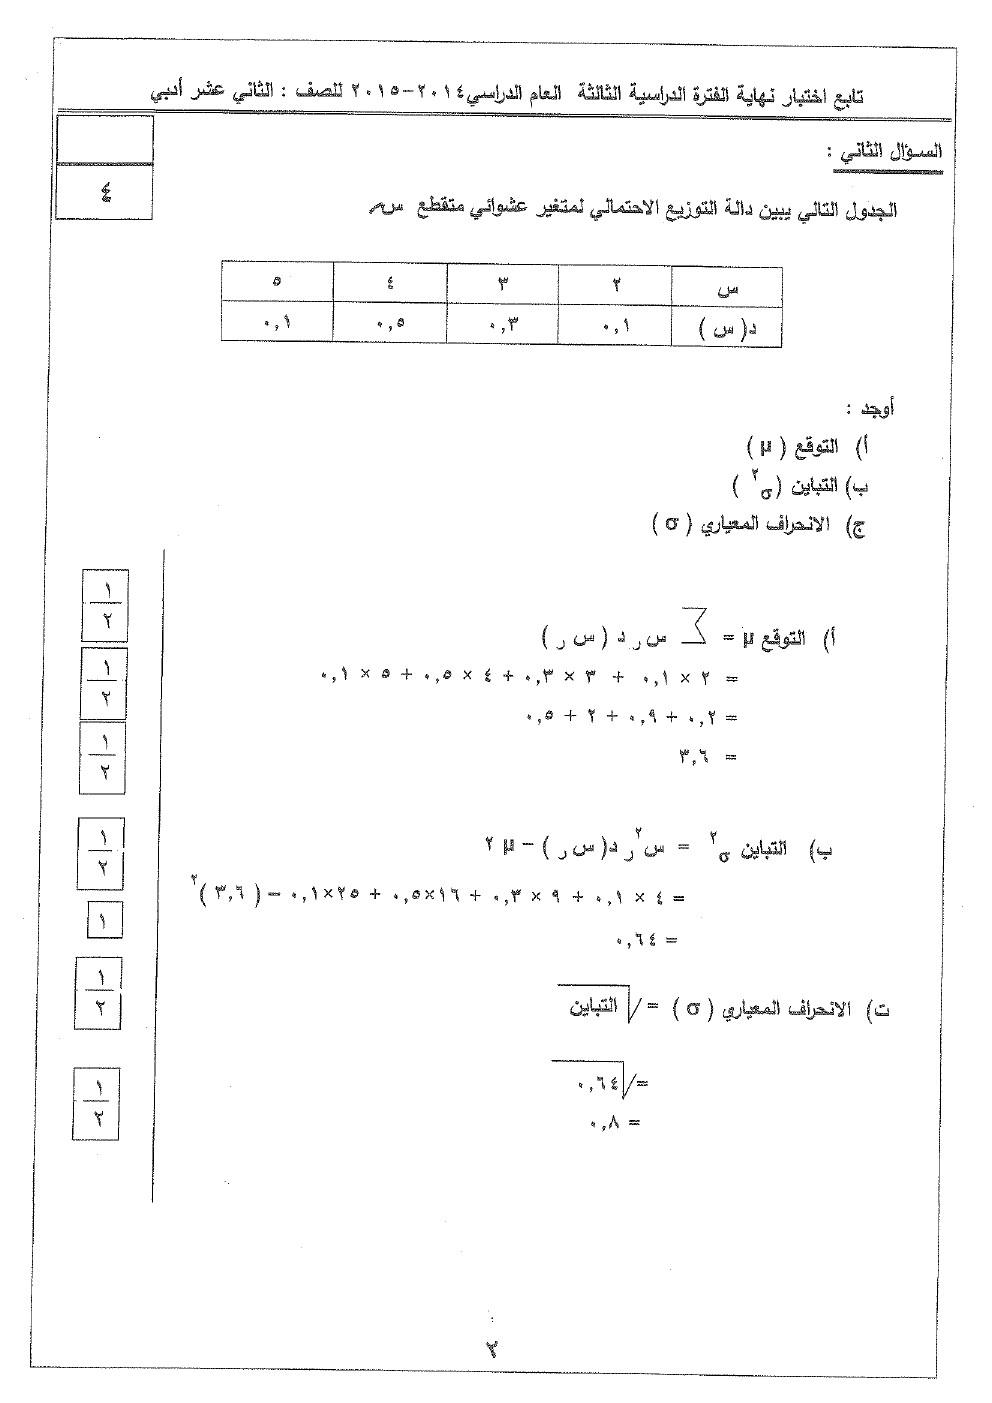 تابع اختبار نهاية الفترة الدراسية الثالثة العام الدراسي ٢٠١٤-٢٠١٥ للصف : الثاني عشر أدبي
السؤال الثاني :
٤
الجدول التالي يبين دالة التوزيع الاحتمالي لمتغير عشوائي متقطع س
س ٢ ٣ ٤ ٥
د( س ) ٠,١ ٠,٣ ٠,٥ ٠,١
أوجد :
أ) التوقع ( μ )
ب) التباين ( σ² )
ج) الانحراف المعياري ( σ )
أ) التوقع μ = ∑ س ر د ( س ر )
١/٢
= ٢ × ٠,١ + ٣ × ٠,٣ + ٤ × ٠,٥ + ٥ × ٠,١
١/٢
= ٠,٢ + ٠,٩ + ٢ + ٠,٥
= ٣,٦
١/٢
ب) التباين σ² = س²ر د( س ر ) – μ ٢
١/٢
= ٤ × ٠,١ + ٩ × ٠,٣ + ١٦×٠,٥ + ٢٥×٠,١ – ( ٣,٦ )²
١
= ٠,٦٤
ت) الانحراف المعياري ( σ ) = √التباين
١/٢
= √٠,٦٤
١/٢
= ٠,٨
٢